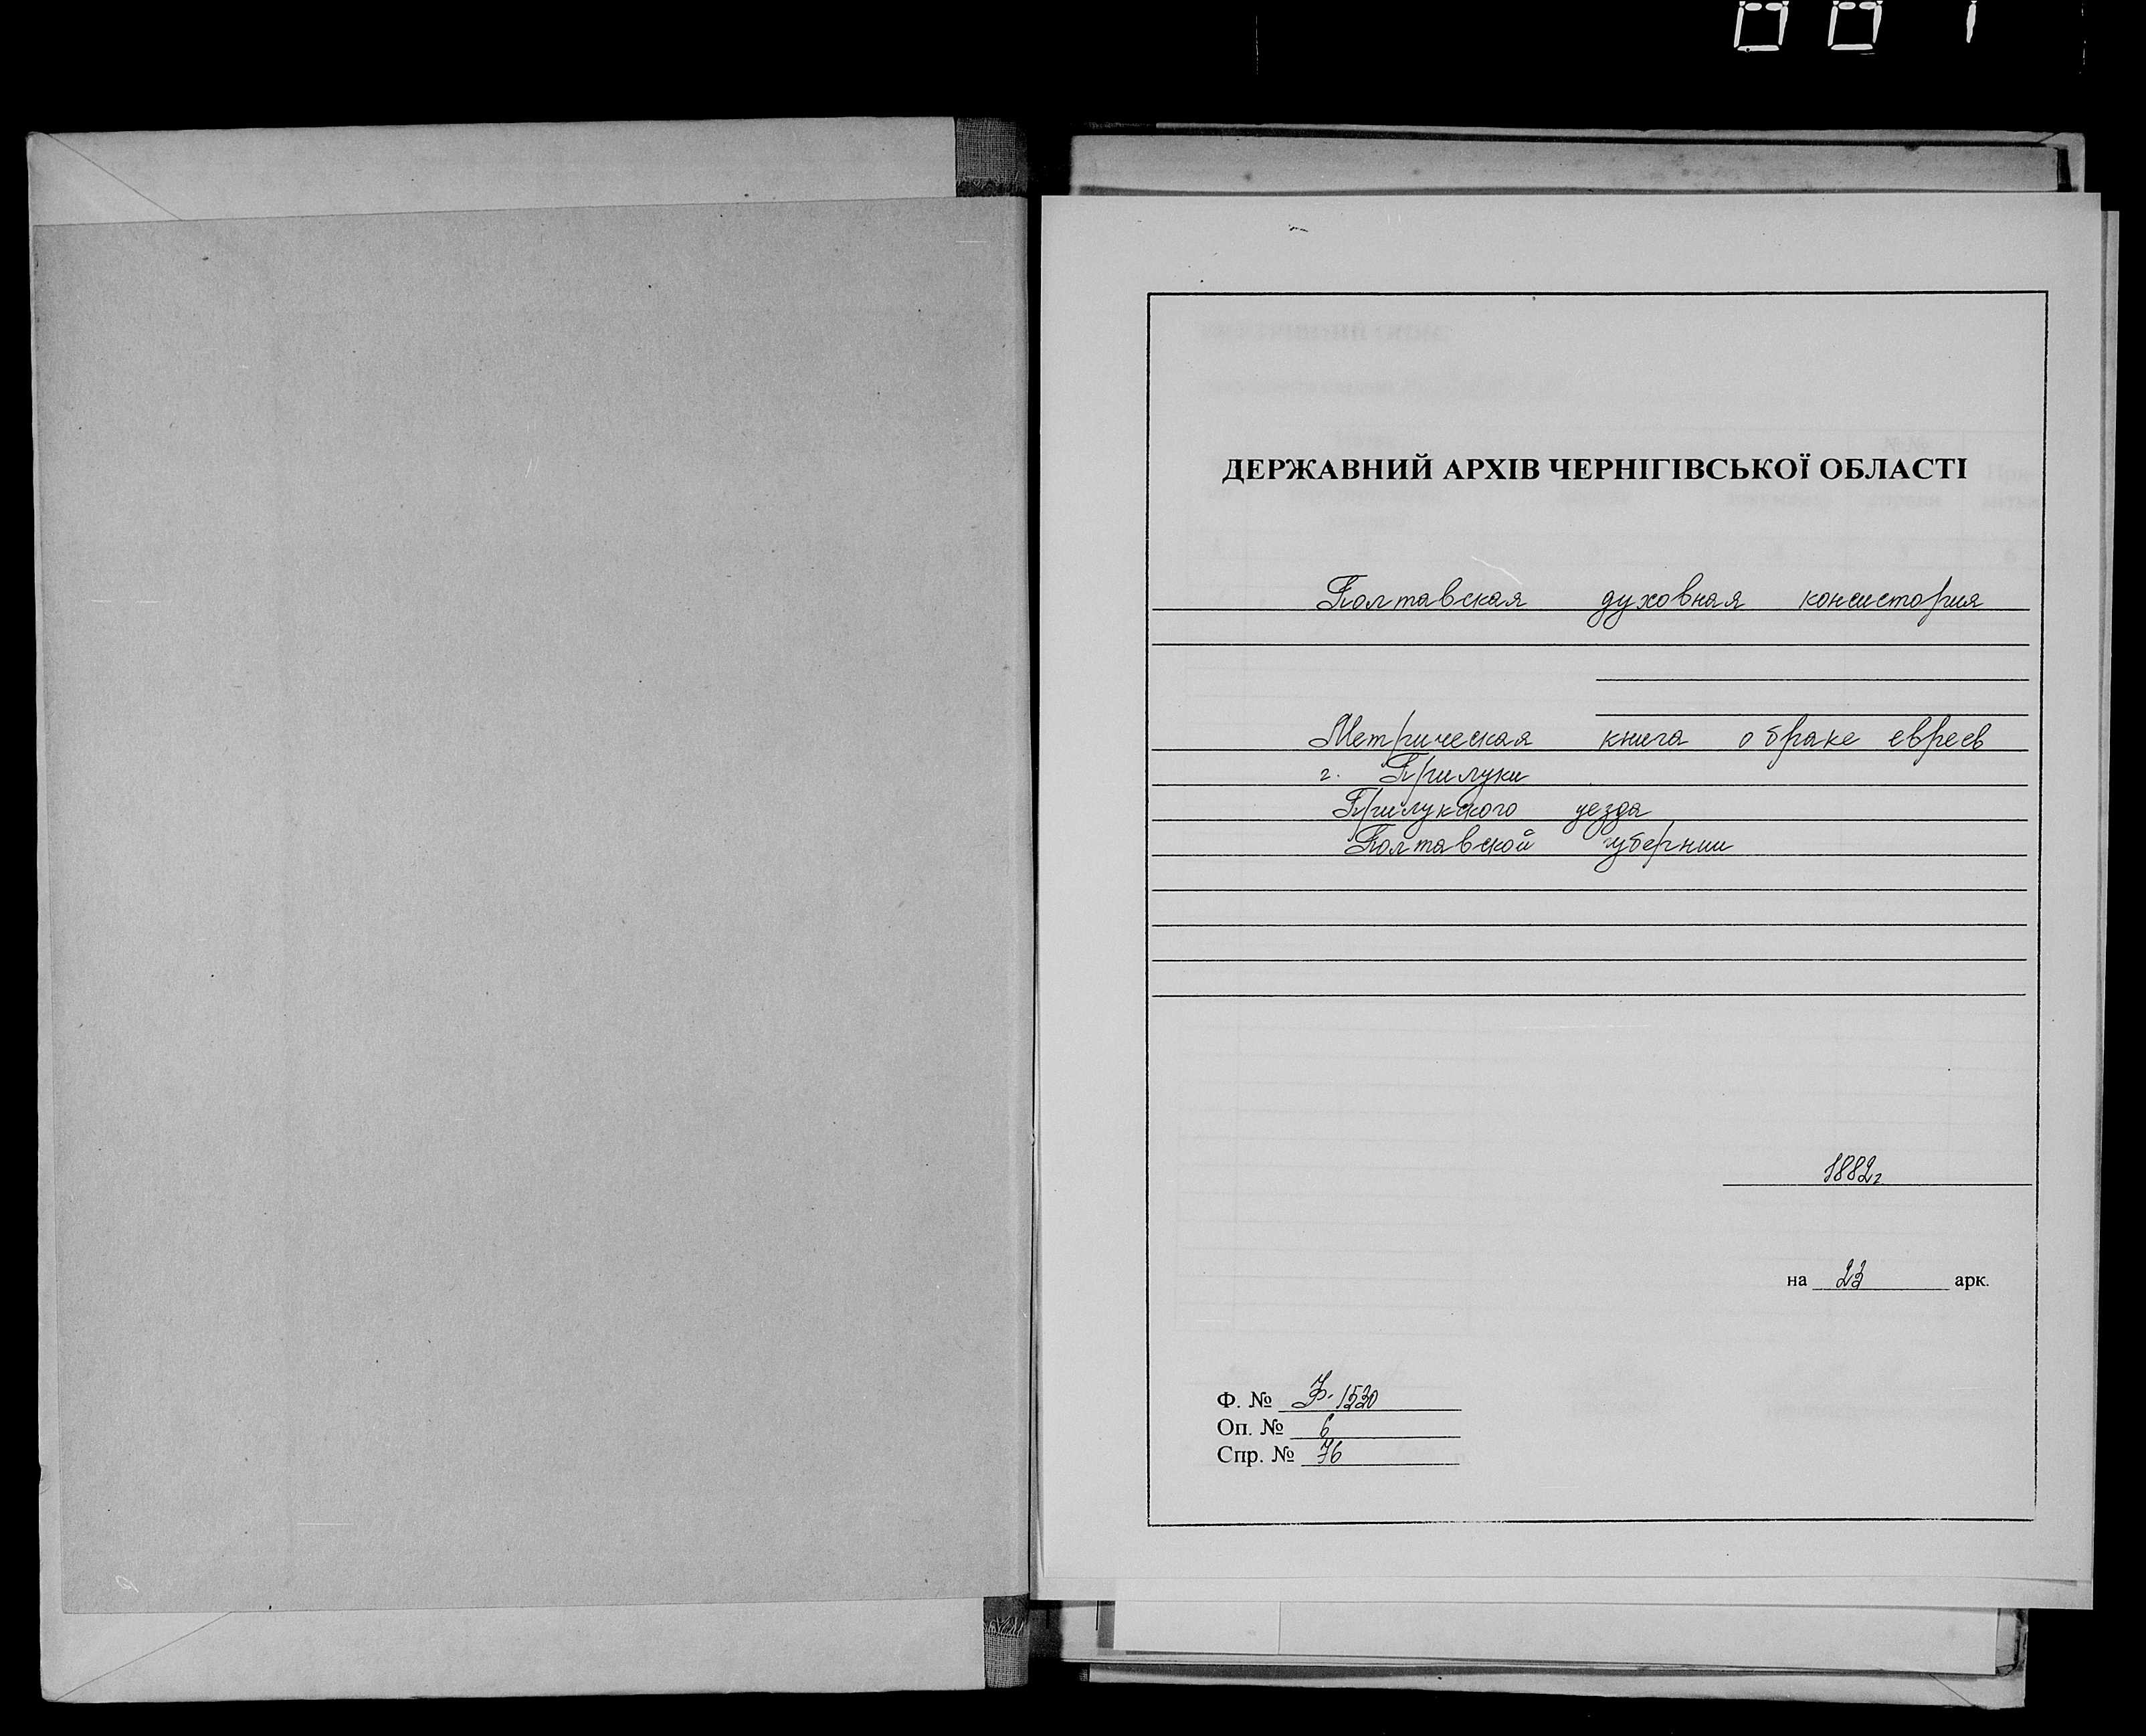 001
ДЕРЖАВНИЙ АРХІВ ЧЕРНІГІВСЬКОЇ ОБЛАСТІ
Полтавская духовная консистория
Метрическая книга о браке евреев
г. Прилуки
Прилукского уезда
Полтавской губернии
1882г
на 23 арк.
Ф. № Ф. 1520
Оп. № 6
Спр. № 76